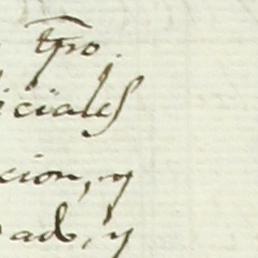 tpo.
iciales
cion, y
ado, y